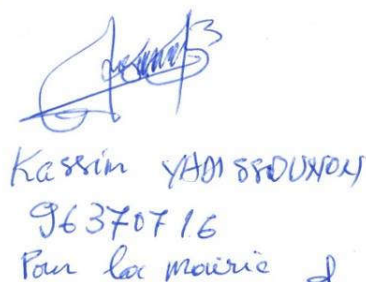 Kassim YADISSOUNON
96370716
Pour la mairie d